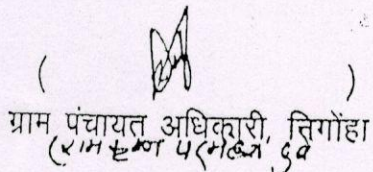 ( )
ग्राम पंचायत अधिकारी, निगोंहा
(रामकृष्ण परमहंस